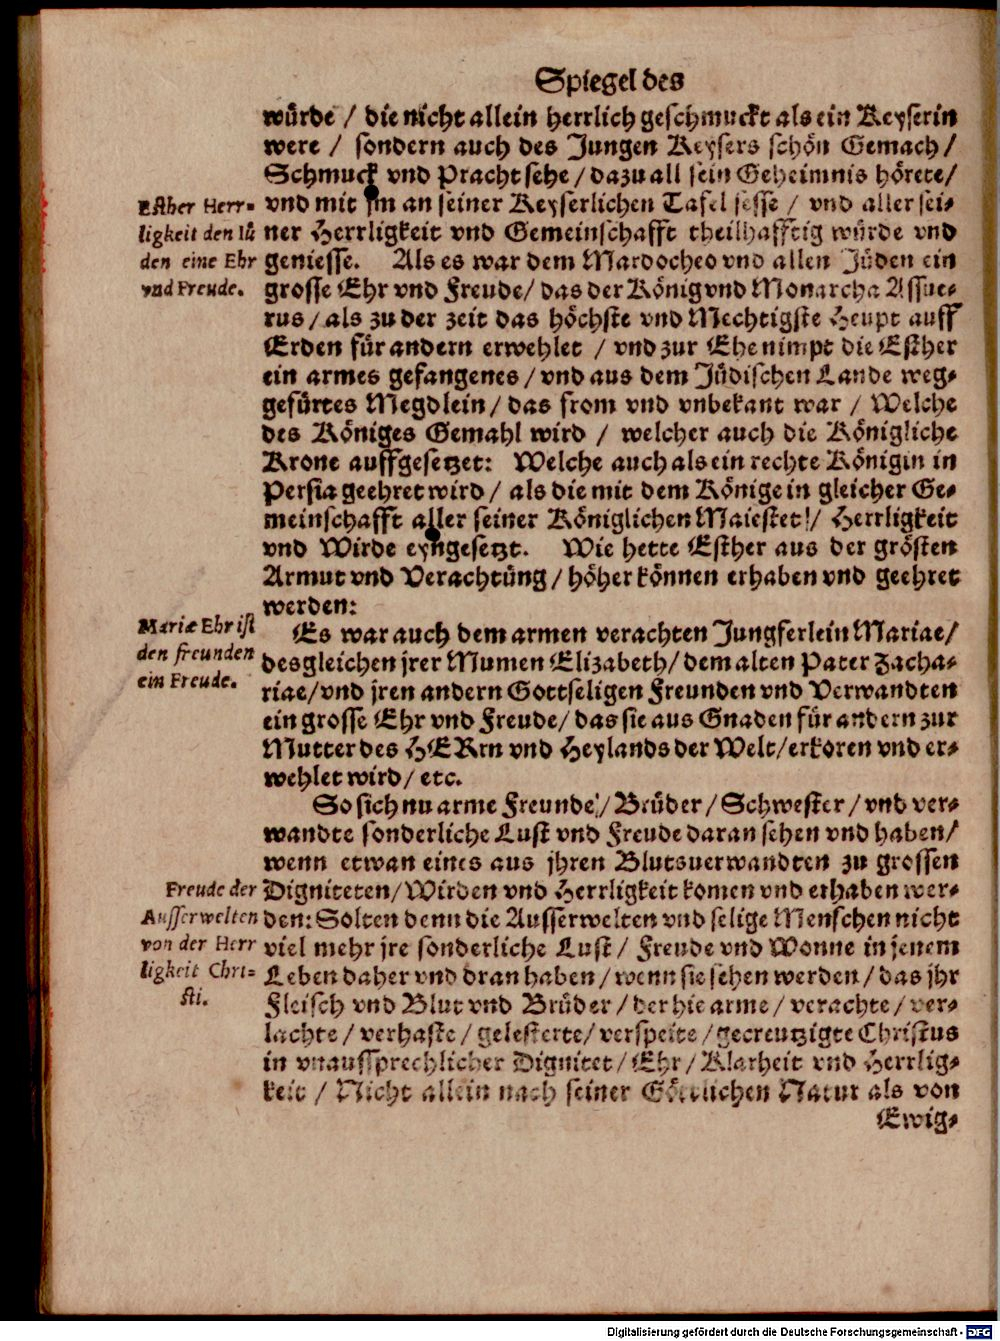 Spiegel des
würde / die nicht allein herrlich geschmuckt als ein Keyserin
were / sondern auch des Jungen Keysers schön Gemach /
Schmuck vnd Pracht sehe / dazu all sein Geheimnis hörete /
vnd mit jm an seiner Keyserlichen Tafel sesse / vnd aller sei-
ner Herrligkeit vnd Gemeinschafft theilhafftig würde vnd
geniesse. Als es war dem Mardocheo vnd allen Jüden ein
grosse Ehr vnd Freude / das der König vnd Monarcha Assue-
rus / als zu der zeit das höchste vnd Mechtigste Heupt auff
Erden für andern erwehlet / vnd zur Ehe nimpt die Esther
ein armes gefangenes / vnd aus dem Jüdischen Lande weg-
gefürtes Megdlein / das from vnd vnbekant war / Welche
des Königes Gemahl wird / welcher auch die Königliche
Krone auffgesetzet: Welche auch als ein rechte Königin in
Persia geehret wird / als die mit dem Könige in gleicher Ge-
meinschafft aller seiner Königlichen Maiestet / Herrligkeit
vnd Wirde eyngesetzt. Wie hette Esther aus der grösten
Armut vnd Verachtüng / höher können erhaben vnd geehret
werden:
Esther Herr-
ligkeit den Iü
den eine Ehr
vnd Freude.
Es war auch dem armen verachten Jungferlein Mariae /
desgleichen jrer Mumen Elizabeth / dem alten Pater Zacha-
riae / vnd jren andern Gottseligen Freunden vnd Verwandten
ein grosse Ehr vnd Freude / das sie aus Gnaden für andern zur
Mutter des HERrn vnd Heylands der Welt / erkoren vnd er-
wehlet wird / etc.
Mariæ Ehr ist
den freunden
ein Freude.
So sich nu arme Freunde / Brüder / Schwester / vnd ver-
wandte sonderliche Lust vnd Freude daran sehen vnd haben /
wenn etwan eines aus jhren Blutsuerwandten zu grossen
Digniteten / Wirden vnd Herrligkeit komen vnd erhaben wer-
den: Solten denn die Ausserwelten vnd selige Menschen nicht
viel mehr jre sonderliche Lust / Freude vnd Wonne in jenem
Leben daher vnd dran haben / wenn sie sehen werden / das jhr
Fleisch vnd Blut vnd Brüder / der hie arme / verachte / ver-
lachte / verhaste / gelesterte / verspeite / gecreutzigte Christus
in vnaussprechlicher Dignitet / Ehr / Klarheit vnd Herrlig-
keit / Nicht allein nach seiner Göttlichen Natur als von
Freude der
Ausserwelten
von der Herr
ligkeit Chri-
sti.
Ewig-
Digitalisierung gefördert durch die Deutsche Forschungsgemeinschaft - DFG